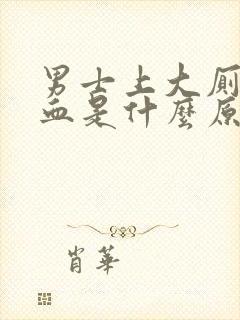 男士上大厕
血是什麼原
肖華